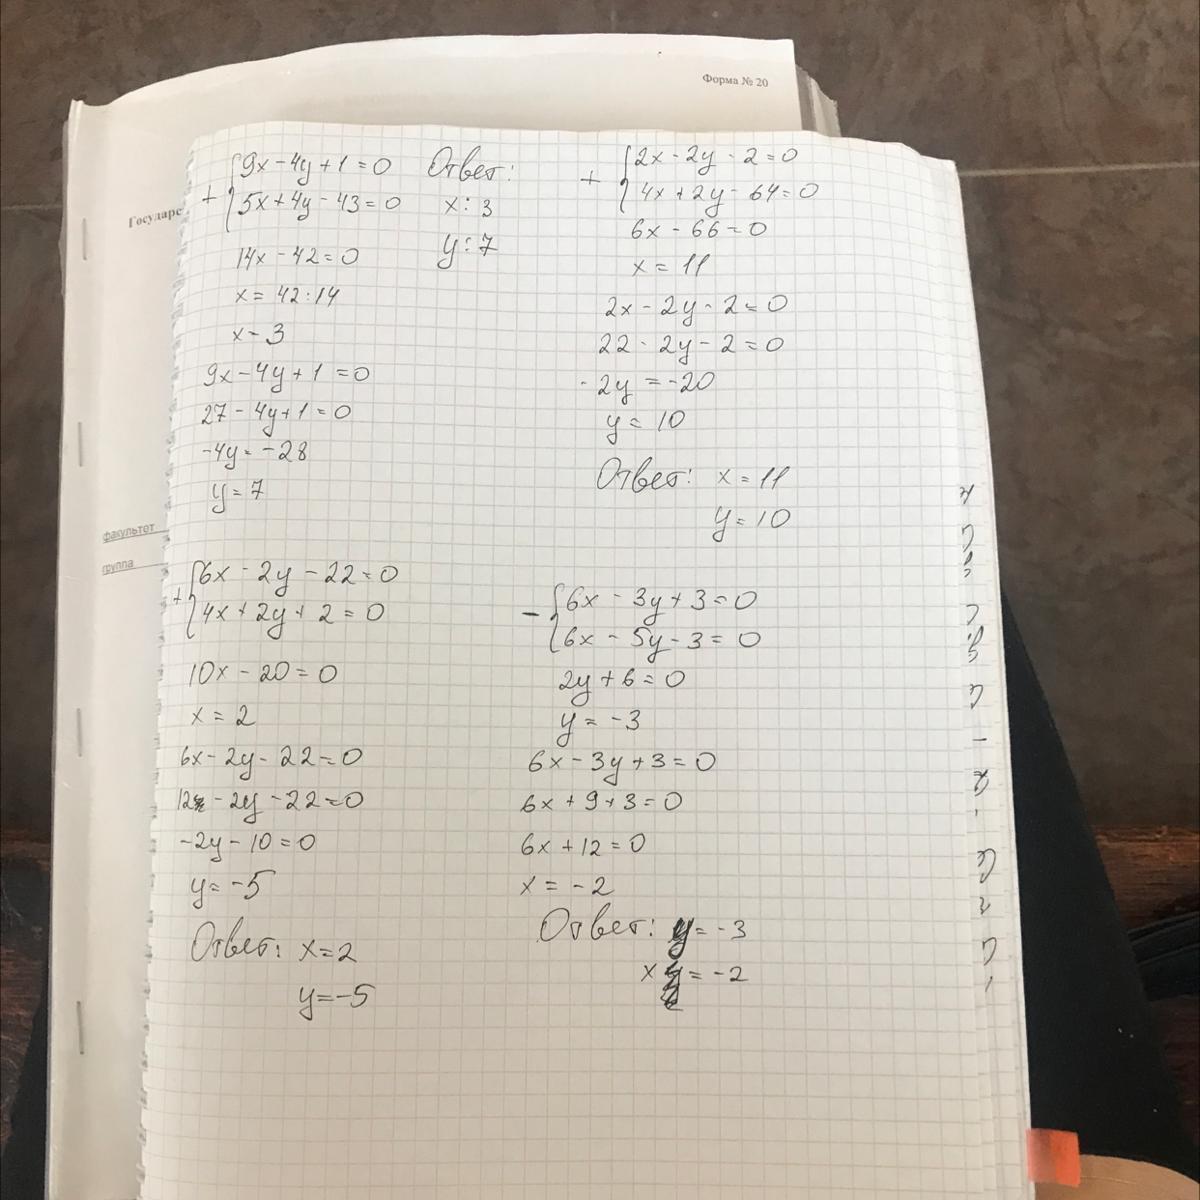 Форма № 20
Государс
факультет
группа
+ { 9x - 4y + 1 = 0
5x + 4y - 43 = 0
14x - 42 = 0
x = 42 : 14
x - 3
9x - 4y + 1 = 0
27 - 4y + 1 = 0
-4y = -28
y = 7
Ответ:
x : 3
y : 7
+ { 2x - 2y - 2 = 0
4x + 2y - 64 = 0
6x - 66 = 0
x = 11
2x - 2y - 2 = 0
22 - 2y - 2 = 0
-2y = -20
y = 10
Ответ: x = 11
y = 10
+ { 6x - 2y - 22 = 0
4x + 2y + 2 = 0
10x - 20 = 0
x = 2
6x - 2y - 22 = 0
12 - 2y - 22 = 0
-2y - 10 = 0
y = -5
Ответ: x = 2
y = -5
- { 6x - 3y + 3 = 0
6x - 5y - 3 = 0
2y + 6 = 0
y = -3
6x - 3y + 3 = 0
6x + 9 + 3 = 0
6x + 12 = 0
x = -2
Ответ: y = -3
x = -2